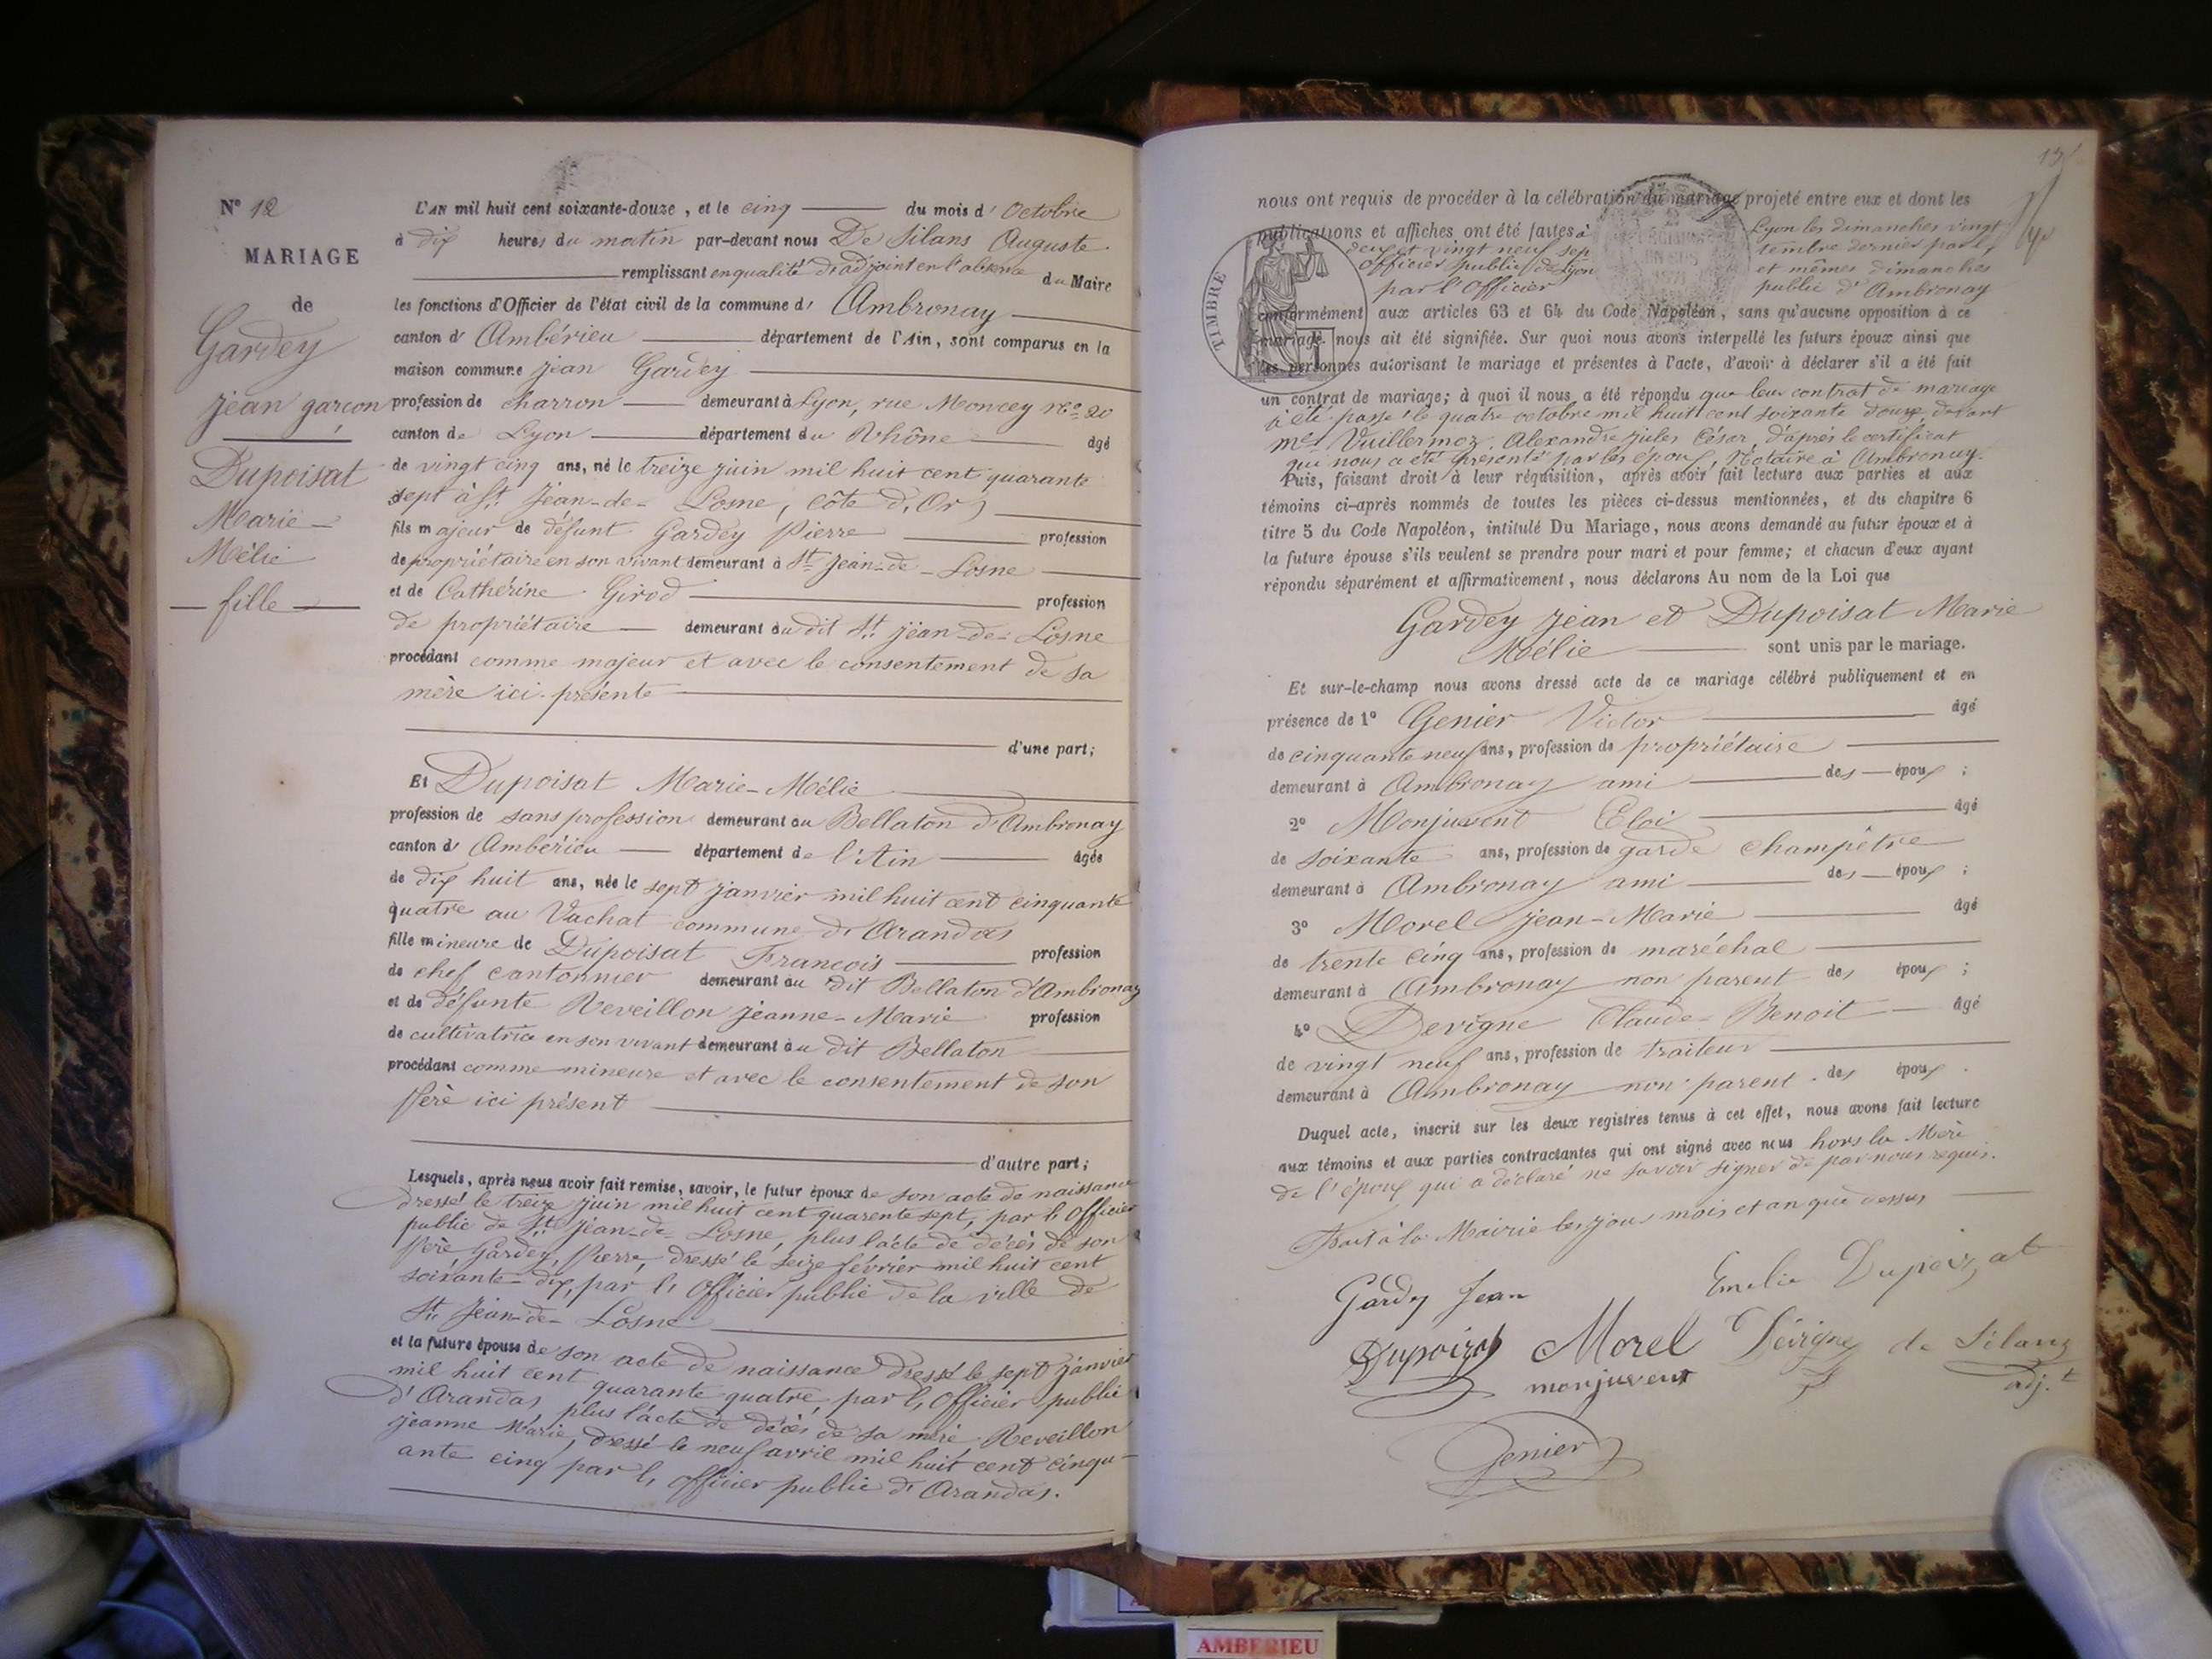 N° 12
MARIAGE
de
Gardey
Jean garçon
Dupoisat
Marie
Mélie
fille
L'AN mil huit cent soixante-douze, et le cinq du mois d'Octobre
à dix heures du matin par-devant nous De Silans Auguste
remplissant en qualité d'adjoint en l'absence du Maire
les fonctions d'Officier de l'état civil de la commune d' Ambronay
canton d' Ambérieu département de l'Ain, sont comparus en la
maison commune Jean Gardey
profession de charron demeurant à Lyon, rue Moncey N° 20
canton de Lyon département du Rhône âgé
de vingt cinq ans, né le treize juin mil huit cent quarante
sept à St Jean-de-Losne, Côte d'Or)
fils majeur de défunt Gardey Pierre profession
de propriétaire en son vivant demeurant à St Jean-de-Losne
et de Cathérine Girod profession
de propriétaire demeurant au dit St Jean-de-Losne
procédant comme majeur et avec le consentement de sa
mère ici présente
d'une part;
Et Dupoisat Marie-Mélie
profession de sans profession demeurant au Bellaton d'Ambronay
canton d' Ambérieu département de l'Ain âgée
de dix huit ans, née le sept janvier mil huit cent cinquante
quatre au Vachat commune d'Arandas
fille mineure de Dupoisat François profession
de chef cantonnier demeurant au dit Bellaton d'Ambronay
et de défunte Reveillon Jeanne-Marie profession
de cultivatrice en son vivant demeurant au dit Bellaton
procédant comme mineure et avec le consentement de son
père ici présent
d'autre part;
Lesquels, après nous avoir fait remise, savoir, le futur époux de son acte de naissance
dressé le treize juin mil huit cent quarente sept, par l'Officier
public de St Jean-de-Losne, plus l'acte de décès de son
père, Gardey, Pierre, dressé le seize février mil huit cent
soixante-dix, par l'Officier public de la ville de
St Jean-de-Losne
et la future épouse de son acte de naissance dressé le sept janvier
mil huit cent quarante quatre, par l'Officier public
d'Arandas, plus l'acte de décès de sa mère, Reveillon
Jeanne Marie, dressé le neuf avril mil huit cent cinqu-
ante cinq par l'officier public d'Arandas.
nous ont requis de procéder à la célébration du mariage projeté entre eux et dont les
publications et affiches ont été faites à Lyon les dimanches vingt
deux et vingt neuf septembre dernier par l'
Officier public de Lyon et mêmes dimanches
par l'Officier public d'Ambronay
TIMBRE
conformément aux articles 63 et 64 du Code Napoléon, sans qu'aucune opposition à ce
mariage nous ait été signifiée. Sur quoi nous avons interpellé les futurs époux ainsi que
les personnes autorisant le mariage et présentes à l'acte, d'avoir à déclarer s'il a été fait
un contrat de mariage; à quoi il nous a été répondu que leur contrat de mariage
à été passé le quatre octobre mil huit cent soixante douze devant
me Vuillermoz Alexandre Jules César, d'après le certificat
qui nous a été présenté par les époux, Notaire à Ambronay.
Puis, faisant droit à leur réquisition, après avoir fait lecture aux parties et aux
témoins ci-après nommés de toutes les pièces ci-dessus mentionnées, et du chapitre 6
titre 5 du Code Napoléon, intitulé Du Mariage, nous avons demandé au futur époux et à
la future épouse s'ils veulent se prendre pour mari et pour femme; et chacun d'eux ayant
répondu séparément et affirmativement, nous déclarons Au nom de la Loi que
Gardey Jean et Dupoisat Marie
Mélie sont unis par le mariage.
Et sur-le-champ nous avons dressé acte de ce mariage célébré publiquement et en
présence de 1° Genier Victor âgé
de cinquante neuf ans, profession de propriétaire
demeurant à Ambronay ami des époux;
2° Monjuvent Eloi âgé
de soixante ans, profession de garde champêtre
demeurant à Ambronay ami des époux;
3° Morel Jean-Marie âgé
de trente cinq ans, profession de maréchal
demeurant à Ambronay non parent des époux;
4° Devigne Claude-Benoit âgé
de vingt neuf ans, profession de traiteur
demeurant à Ambronay non parent des époux.
Duquel acte, inscrit sur les deux registres tenus à cet effet, nous avons fait lecture
aux témoins et aux parties contractantes qui ont signé avec nous hors la Mère
de l'époux qui a déclaré ne savoir signer de par nous requis.
Fait à la Mairie les jour mois et an que dessus
Gardy Jean Emelie Dupoizat
Dupoizat Morel Dévigne de Silans
monjuvent adj.t
Genier
AMBERIEU